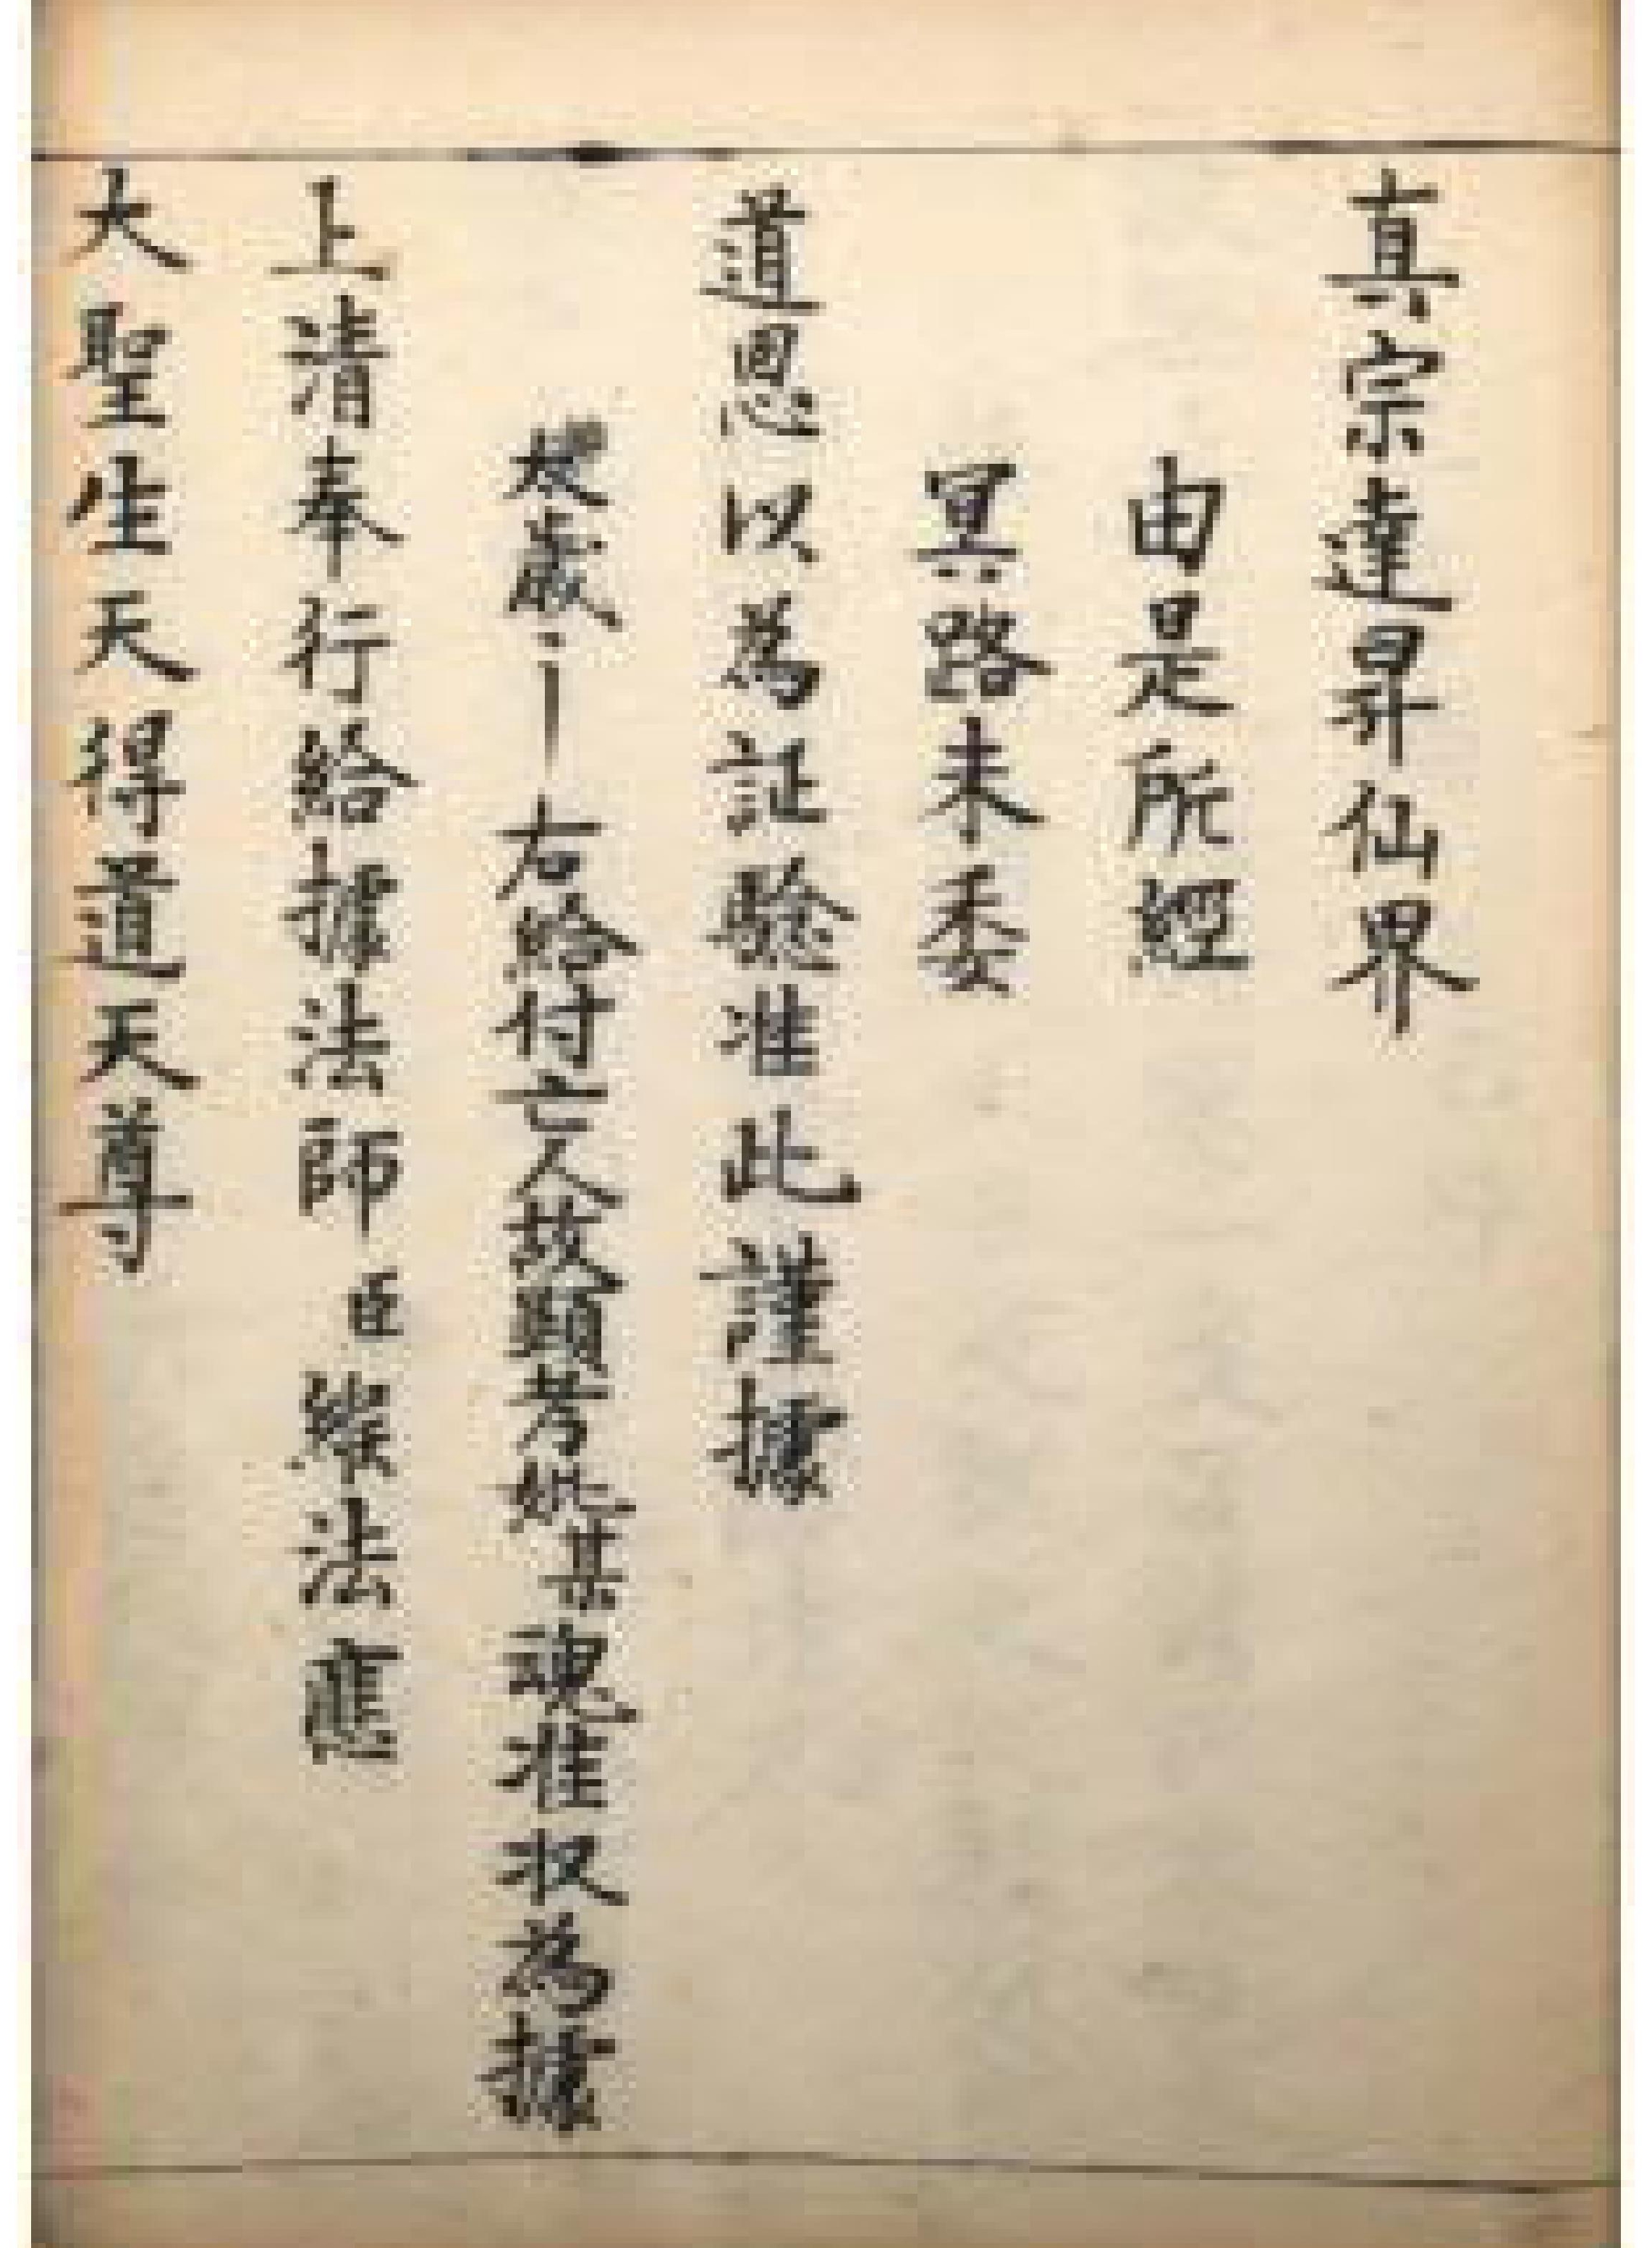 真宗達昇仙界
由是所經
冥路未委
道恩以為証驗准此謹據
太歲 右給付亡人故顯考妣某魂准收為據
上清奉行給據法師臣 法應
大聖生天得道天尊